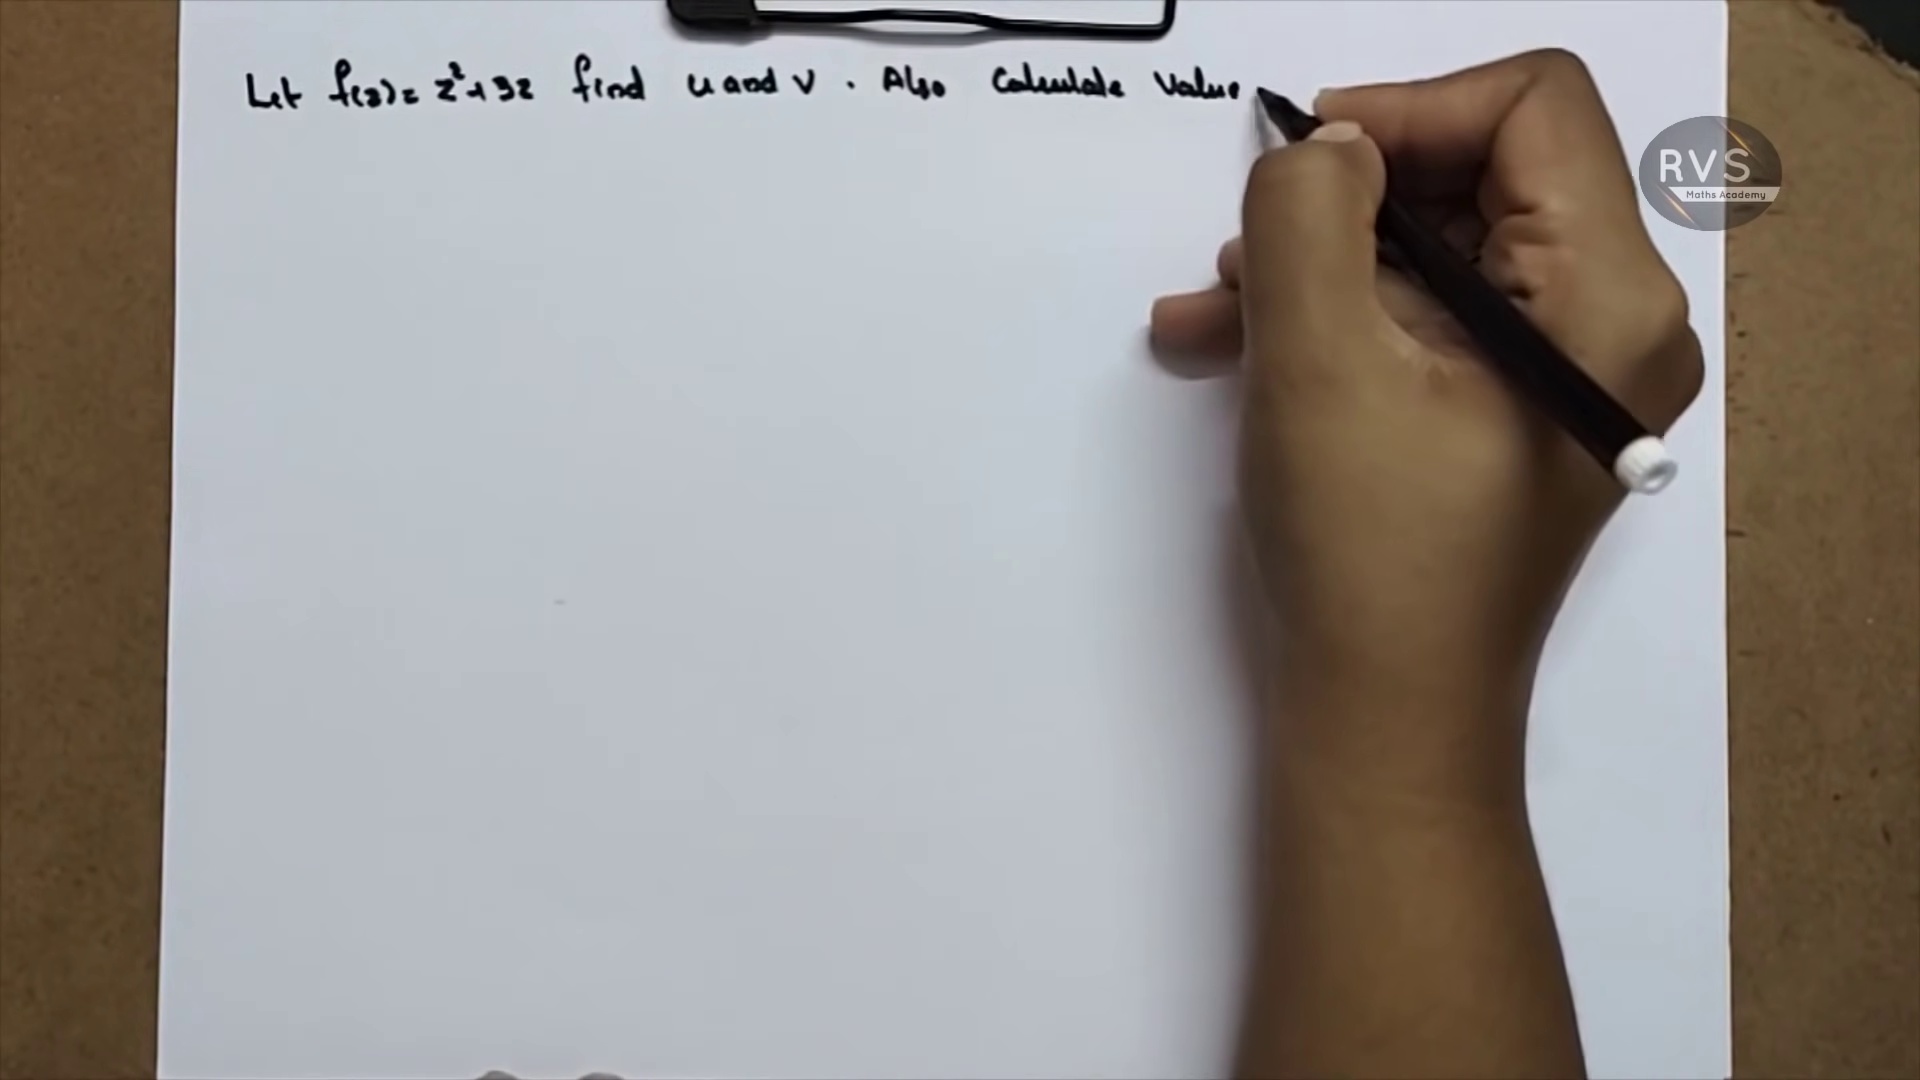 Let f(z) = z²+3z find u and v. Also Calculate Value
RVS
Maths Academy